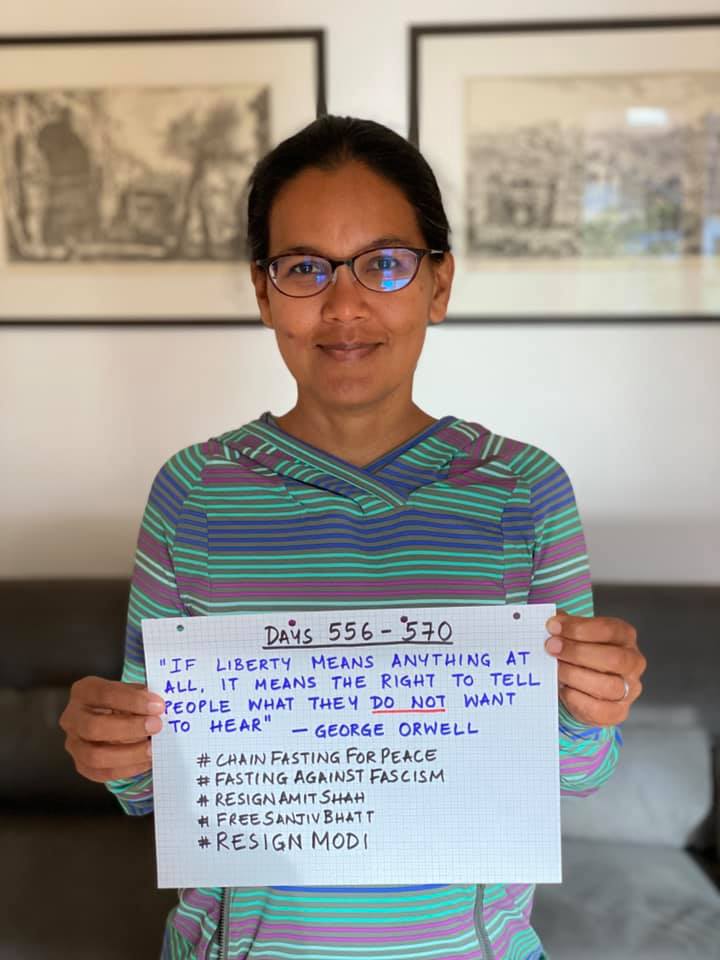 DAYS 556 - 570
"IF LIBERTY MEANS ANYTHING AT
ALL, IT MEANS THE RIGHT TO TELL
PEOPLE WHAT THEY DO NOT WANT
TO HEAR" - GEORGE ORWELL
# CHAIN FASTING FOR PEACE
# FASTING AGAINST FASCISM
# RESIGN AMIT SHAH
# FREE SANJIV BHATT
# RESIGN MODI